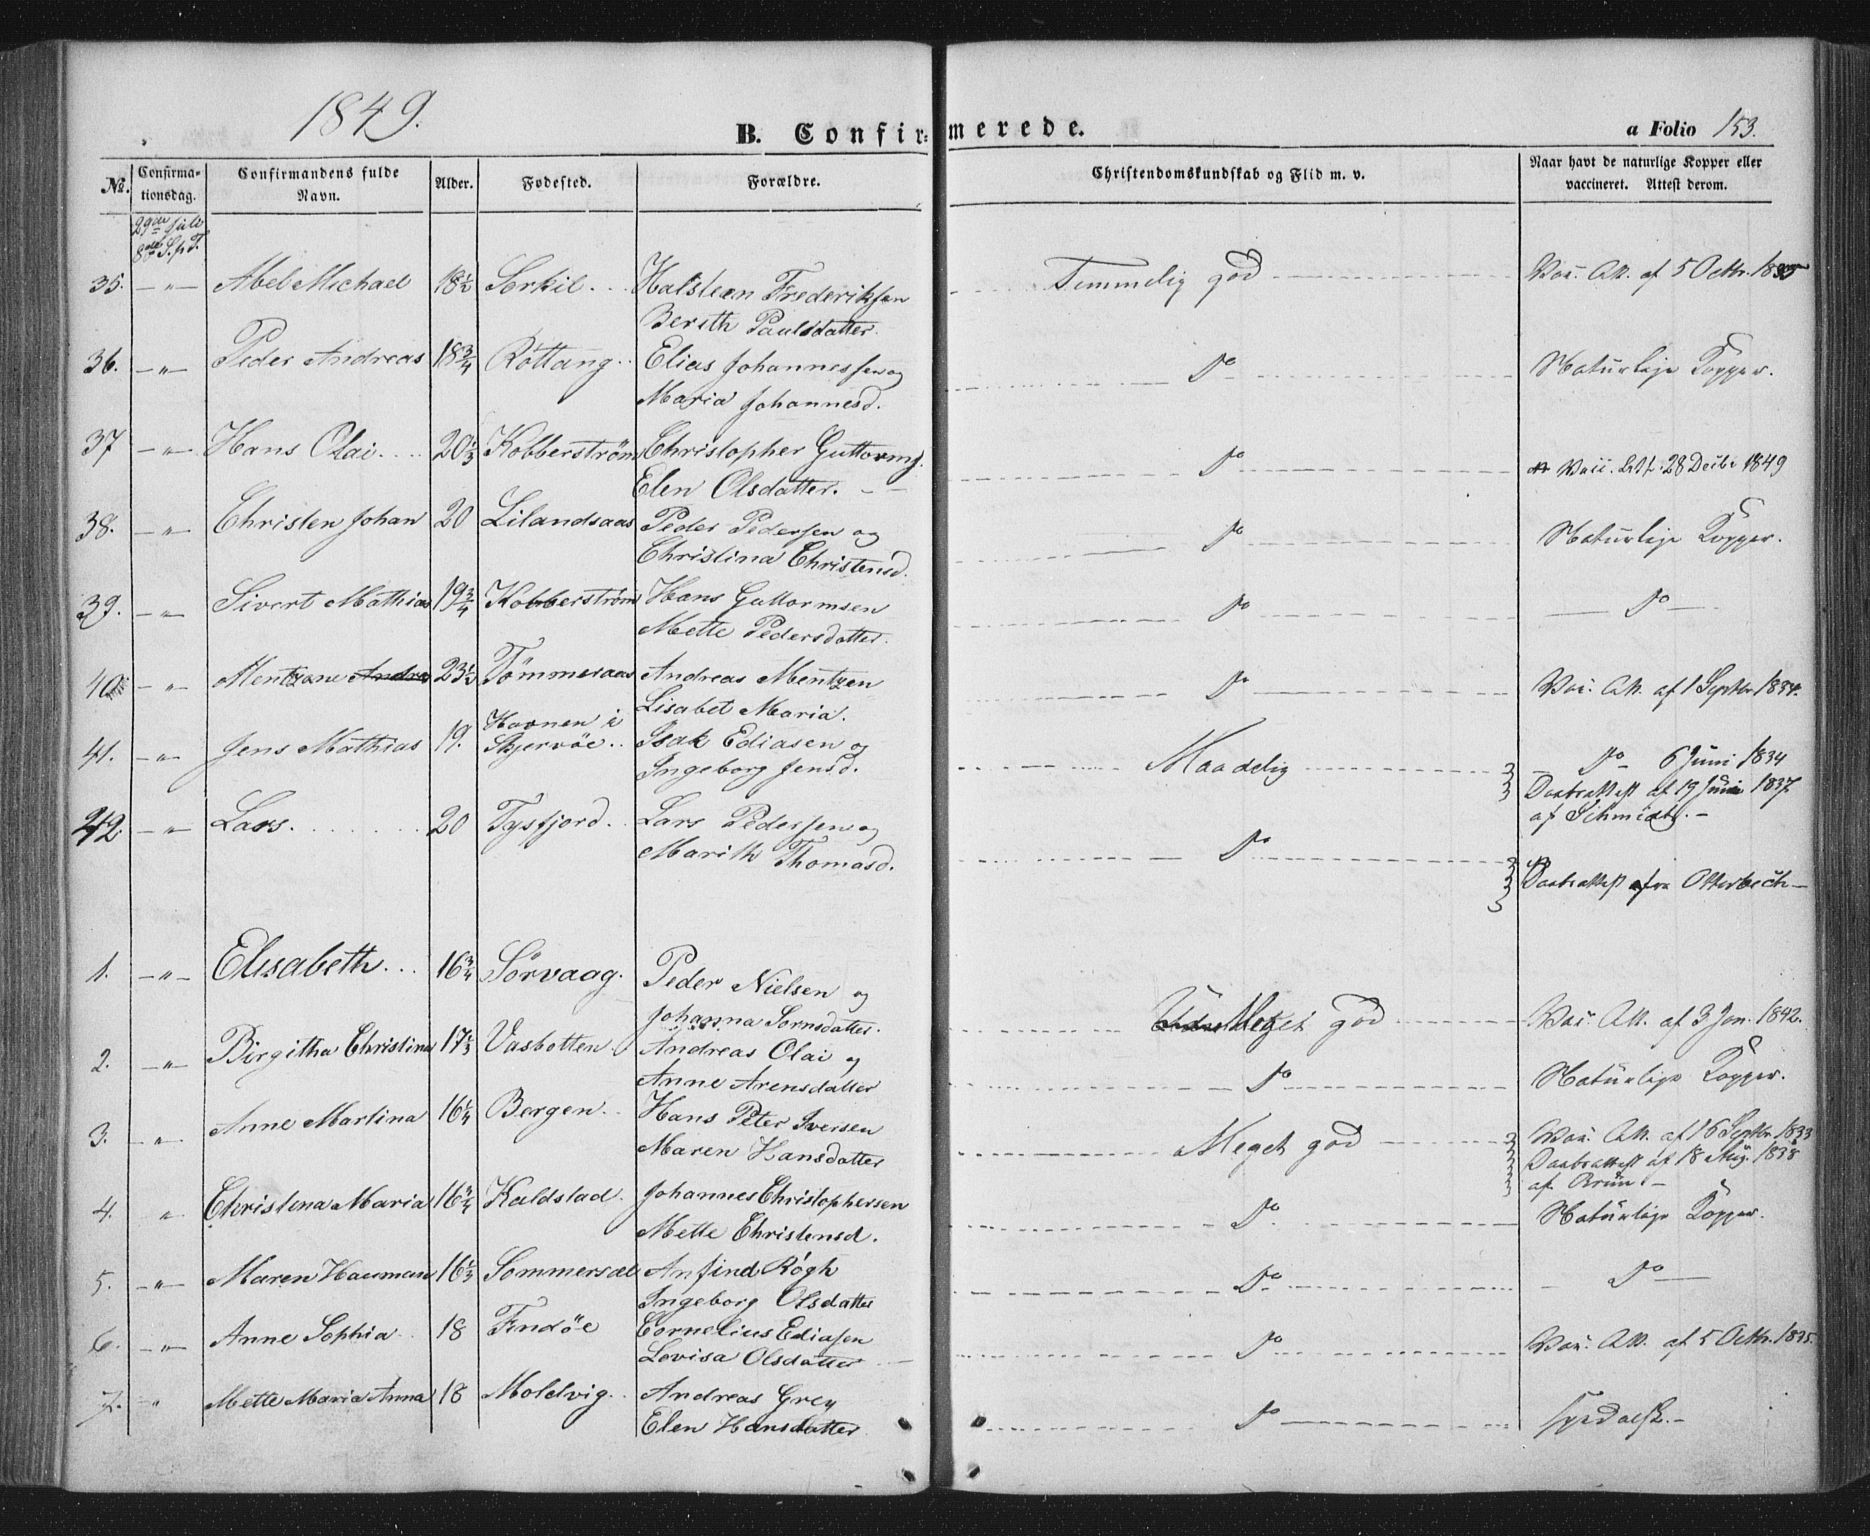 1849.
B. Confirmerede.
a Folio 153.
No.
Confirma-
tionsdag.
Confirmandens fulde
Navn.
Alder.
Fødested.
Forældre.
Christendomskundskab og Flid m. v.
Naar havt de naturlige Kopper eller
vaccineret. Attest derom.
29de Juli
8de S. p. T.
35. — " — Abel Michael 18½ Sørkil . . Halsteen Frederiksen Temmelig god Vac. Att. af 5 Octbr. 1835
Berith Paulsdatter.
36. — " — Peder Andreas 18¾ Rottang . . Elias Johannessen og Do Naturlige Kopper.
Maria Johannesd.
37 — " — Hans Olai . . . . 20⅓ Kobberstrøm Christopher Guttorms. Do Vacc. Att. 28 Decbr 1849
Elen Olsdatter. — —
38. — " — Christen Johan 20 Lilandsaas Peder Pedersen og Do Naturlige Kopper.
Christina Christensd.
39. — " — Sivert Mathias 19¾ Kobberstrøm Hans Guttormsen Do — Do —
Mette Pedersdatter.
40 — " — Mentzone Andrea 23⅓ Tømmeraas Andreas Mentzen Do Vac. Att. af 1 Septbr 1834.
Lisabet Maria.
41. — " — Jens Mathias 19. Havnen i
Skjervöe . . Isak Ediasen og Maadelig — Do — 6 Juni 1834
Ingeborg Jensd. Daabsattest af 19 Juni 1837
af Schmidt. —
42 — " — Lars. . . . . . . . 20 Tysfjord . . Lars Pedersen og Do
Marith Thomasd. Daabsattest fra Otterbech —
1. — " — Elisabeth . . . 16¾ Sörvaag. Peder Nielsen og Meget god Vac. Att. af 3 Jan. 1842.
Johanna Sornsdatter.
2. — " — Birgitha Christina 17⅓ Vasbotten Andreas Olai og Do Naturlige Kopper.
Anne Arensdatter
3. — " — Anne Martina 16¼ Bergen . . Hans Peter Iversen Meget god Vac. Att. af 16 Septbr. 1833
Maren Hansdatter Daabsattest af 18 Aug. 1838
af Brun —
4. " Christena Maria 16¾ Kaldstad. Johannes Christophersen Do Naturlige Kopper.
Mette Christensd.
5. — " — Maren Hauman 16⅓ Sommersæl Anfind Rögh Do — Do —
Ingeborg Olsdatter
6. — " — Anne Sophia . . 18 Findöe Cornelius Ediasen Do Vac. Att. af 5 Octbr. 1835.
Lovisa Olsdatter
7. " Mette Maria Anna 18 Moldvig . . Andreas Grey Do
Elen Hansdatter